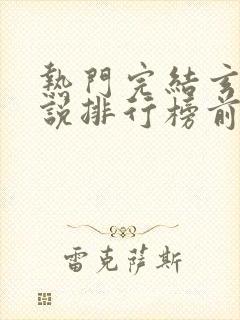 熱門完結玄
說排行榜前
雷克薩斯